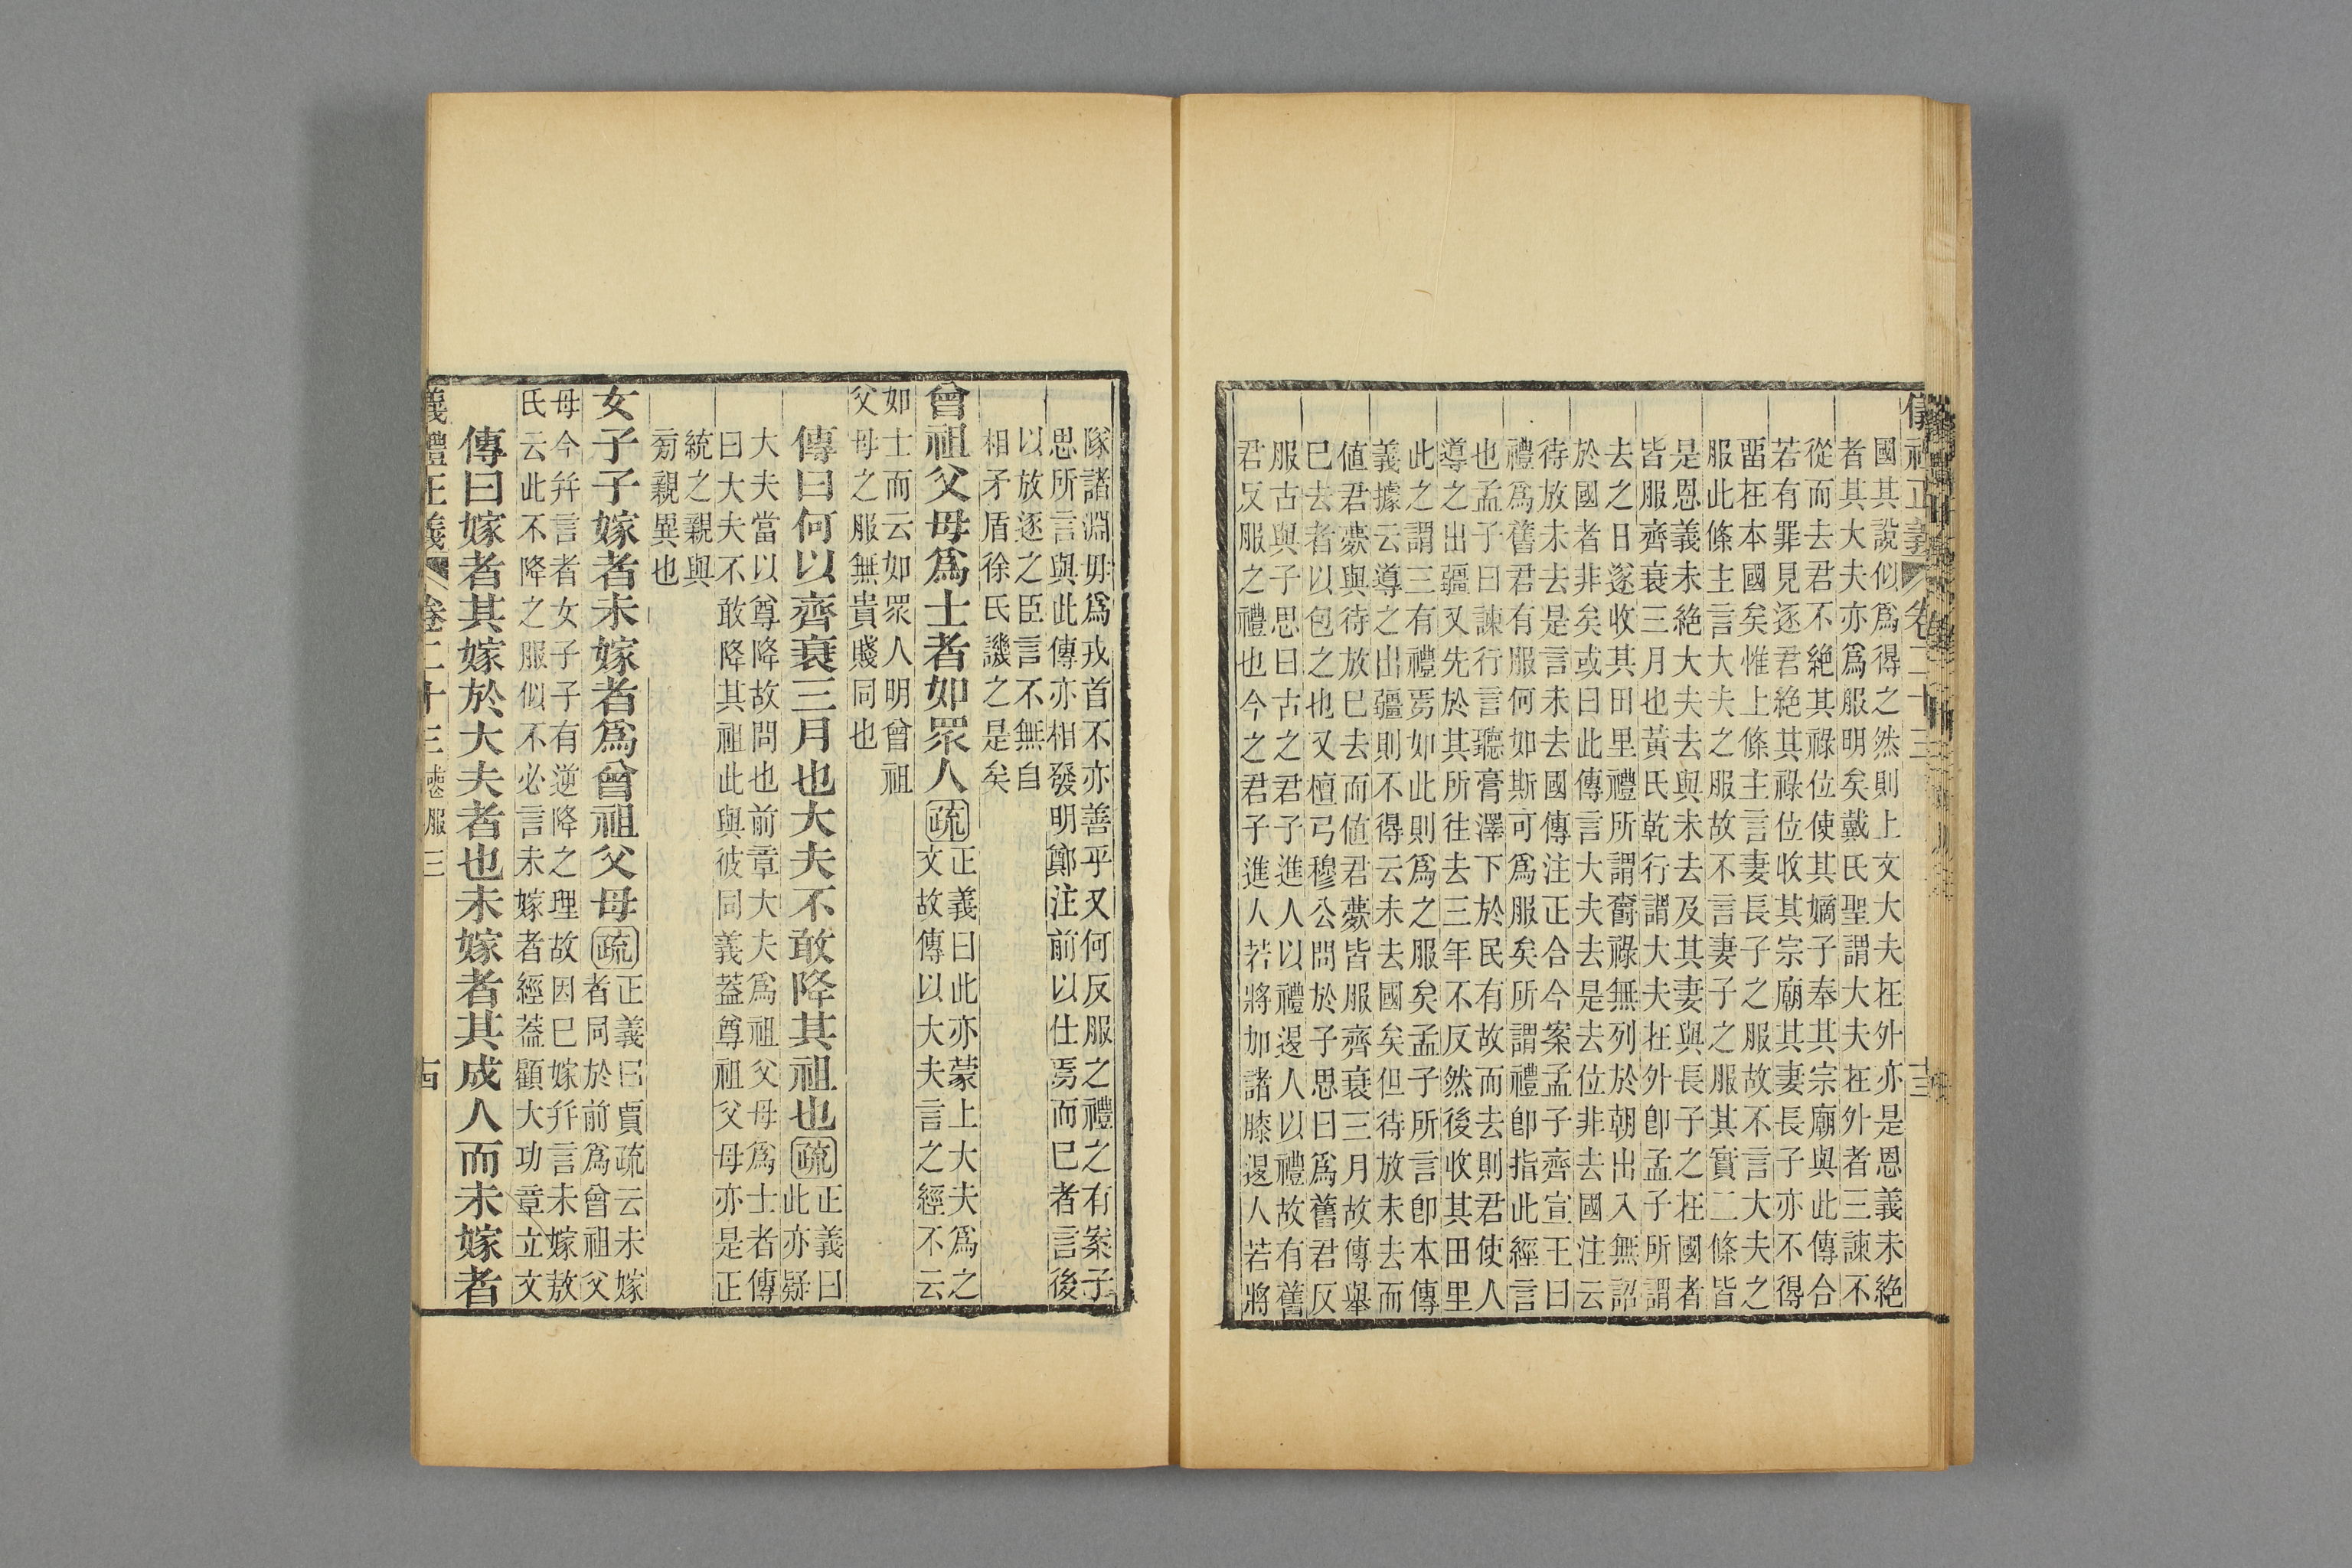 儀禮正義 卷二十三 十三
國其說似爲得之然則上文大夫在外亦是恩義未絕
者其大夫亦爲服明矣戴氏聖謂大夫在外者三諫不
從而去君不絕其祿位使其嫡子奉其宗廟與此傳合
若有罪見逐君絕其祿位收其宗廟其妻長子亦不得
畱在本國矣惟上條主言妻長子之服故不言大夫之
服此條主言大夫之服故不言妻子之服其實二條皆
是恩義未絕大夫去與未去及其妻與長子之在國者
皆服齊衰三月也黃氏乾行謂大夫在外卽孟子所謂
去之日遂收其田里禮所謂爵祿無列於朝出入無詔
於國者非矣或曰此傳言大夫去是去位非去國注云
待放未去是言未去國傳注正合今案孟子齊宣王曰
禮爲舊君有服何如斯可爲服矣所謂禮卽指此經言
也孟子曰諫行言聽膏澤下於民有故而去則君使人
導之出疆又先於其所往去三年不反然後收其田里
此之謂三有禮焉如此則爲之服矣孟子所言卽本傳
義據云導之出疆則不得云未去國矣但待放未去而
値君薨與待放已去而値君薨皆服齊衰三月故傳舉
已去者以包之也又檀弓穆公問於子思曰爲舊君反
服古與子思曰古之君子進人以禮退人以禮故有舊
君反服之禮也今之君子進人若將加諸膝退人若將
隊諸淵毋爲戎首不亦善乎又何反服之禮之有案子
思所言與此傳亦相發明鄭注前以仕焉而已者言後
以放逐之臣言不無自
相矛盾徐氏譏之是矣
曾祖父母爲士者如眾人疏正義曰此亦蒙上大夫爲之
文故傳以大夫言之經不云
如士而云如眾人明曾祖
父母之服無貴賤同也
傳曰何以齊衰三月也大夫不敢降其祖也疏正義曰
此亦疑
大夫當以尊降故問也前章大夫爲祖父母爲士者傳
曰大夫不敢降其祖此與彼同義蓋尊祖父母亦是正
統之親與
旁親異也
女子子嫁者未嫁者爲曾祖父母疏正義曰賈疏云未嫁
者同於前爲曾祖父
母今幷言者女子子有逆降之理故因已嫁幷言未嫁敖
氏云此不降之服似不必言未嫁者經蓋顧大功章立文
傳曰嫁者其嫁於大夫者也未嫁者其成人而未嫁者
義禮正義 卷二十三 喪服三 古